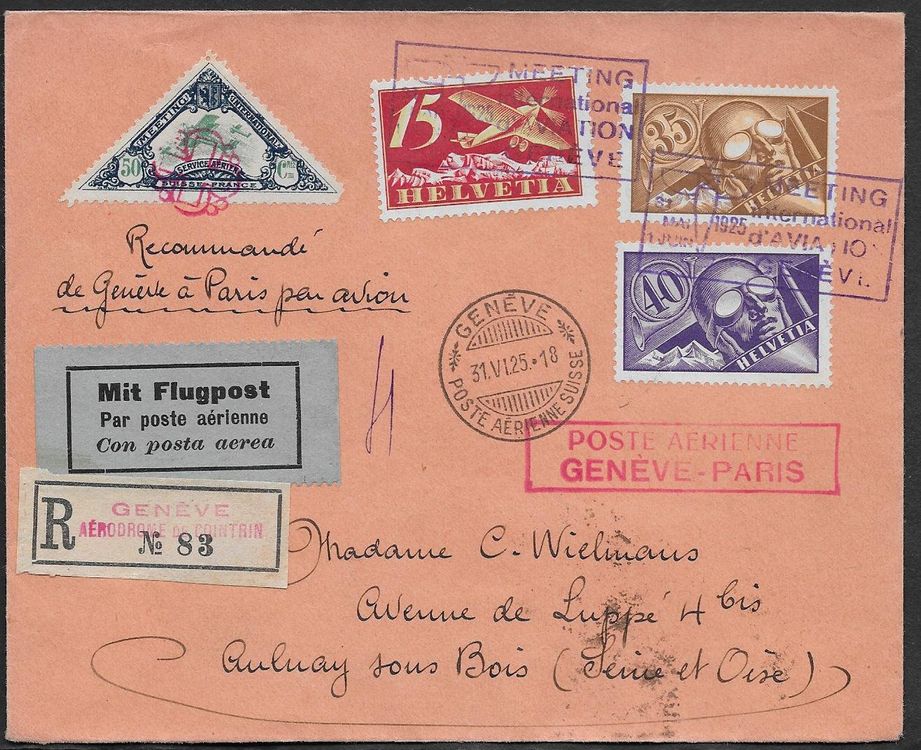 MEETING INTERNATIONAL
50 Cmes
SERVICE AÉRIEN
SUISSE-FRANCE
15
HELVETIA
35
HELVETIA
40
HELVETIA
MEETING
international
d'AVIATION
GENÈVE
31
MAI
1 JUIN
1925
MEETING
international
d'AVIATIO
ÈVE
Recommandé
de Genève à Paris par avion
Mit Flugpost
Par poste aérienne
Con posta aerea
GENÈVE
31.VI.25.-18
POSTE AÉRIENNE SUISSE
POSTE AÉRIENNE
GENÈVE-PARIS
R
GENÈVE
AÉRODROME DE COINTRIN
№ 83
Madame C. Wielmans
Avenue de Luppé 4 bis
Aulnay sous Bois (Seine et Oise)